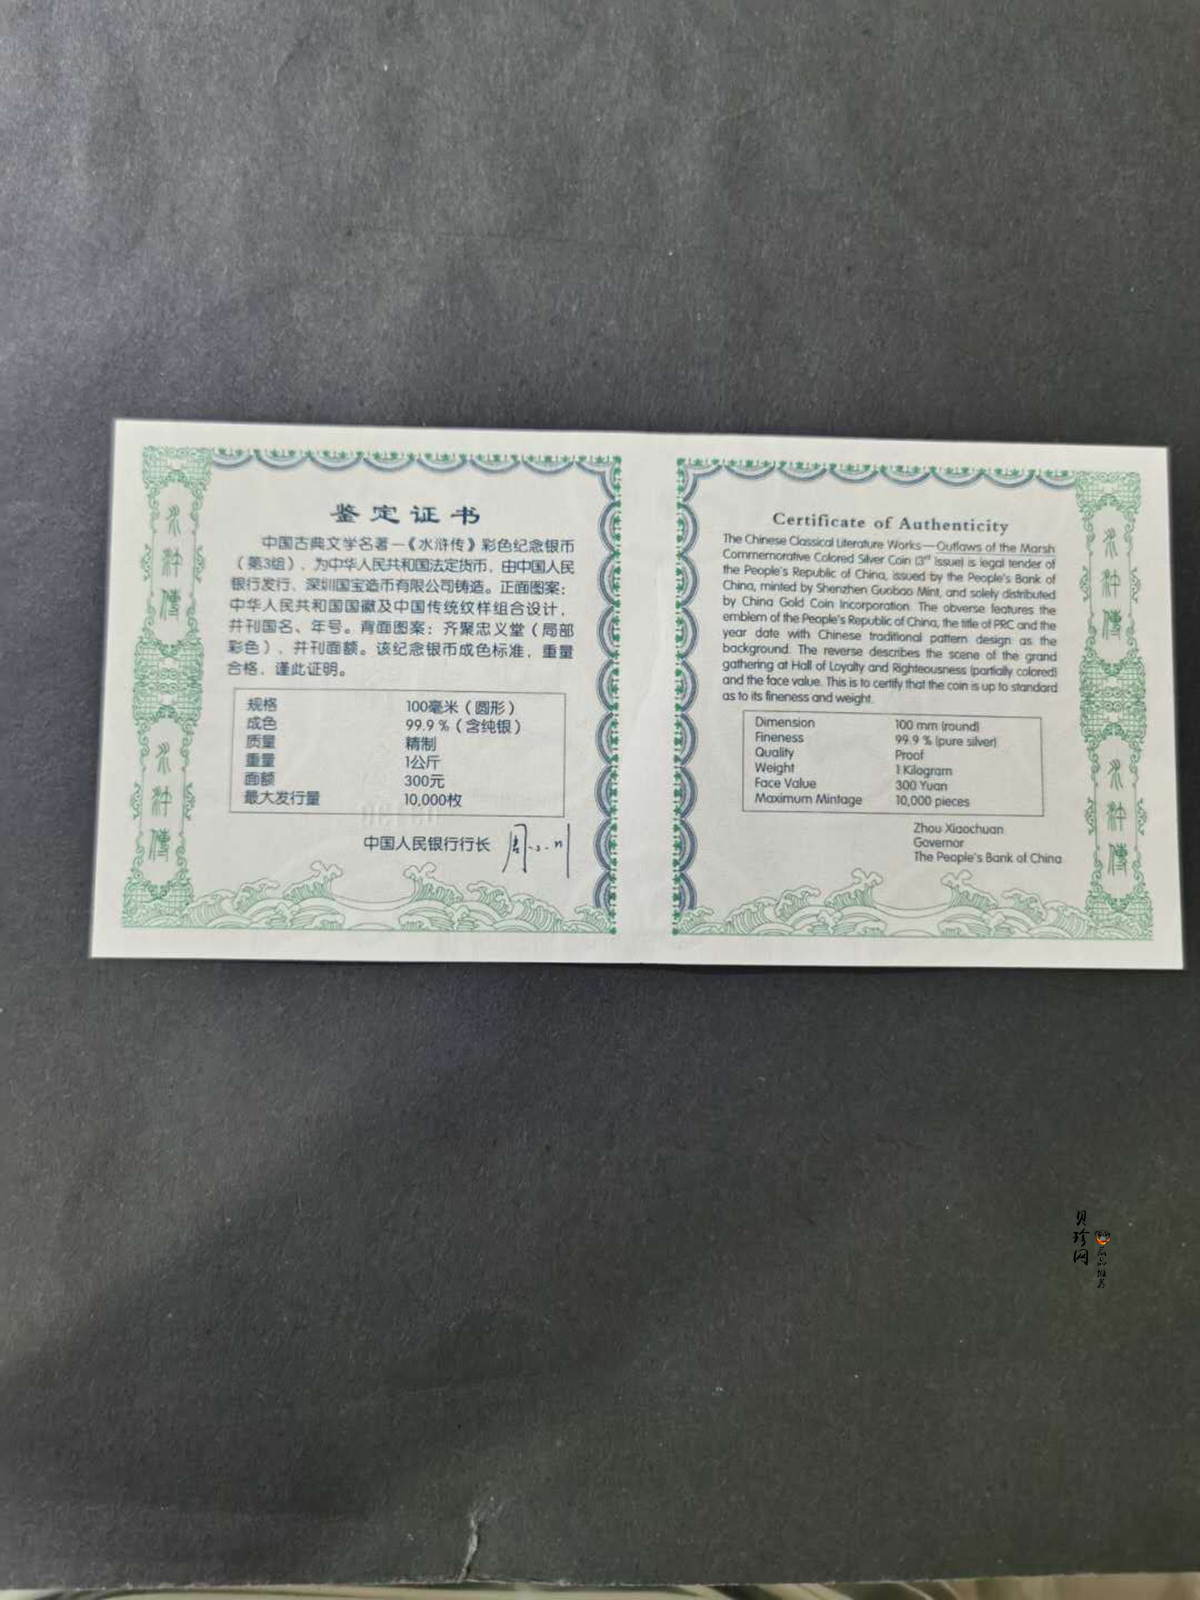 鉴定证书
中国古典文学名著—《水浒传》彩色纪念银币
（第3组），为中华人民共和国法定货币，由中国人民
银行发行、深圳国宝造币有限公司铸造。正面图案：
中华人民共和国国徽及中国传统纹样组合设计，
并刊国名、年号。背面图案：齐聚忠义堂（局部
彩色），并刊面额。该纪念银币成色标准，重量
合格，谨此证明。
规格 100毫米（圆形）
成色 99.9％（含纯银）
质量 精制
重量 1公斤
面额 300元
最大发行量 10,000枚
中国人民银行行长
水浒傳
水浒傳
Certificate of Authenticity
The Chinese Classical Literature Works—Outlaws of the Marsh
Commemorative Colored Silver Coin (3rd issue) is legal tender of
the People's Republic of China, issued by the People's Bank of
China, minted by Shenzhen Guobao Mint, and solely distributed
by China Gold Coin Incorporation. The obverse features the
emblem of the People's Republic of China, the title of PRC and the
year date with Chinese traditional pattern design as the
background. The reverse describes the scene of the grand
gathering at Hall of Loyalty and Righteousness (partially colored)
and the face value. This is to certify that the coin is up to standard
as to its fineness and weight.
Dimension 100 mm (round)
Fineness 99.9 % (pure silver)
Quality Proof
Weight 1 Kilogram
Face Value 300 Yuan
Maximum Mintage 10,000 pieces
Zhou Xiaochuan
Governor
The People's Bank of China
水浒傳
水浒傳
贝珍网